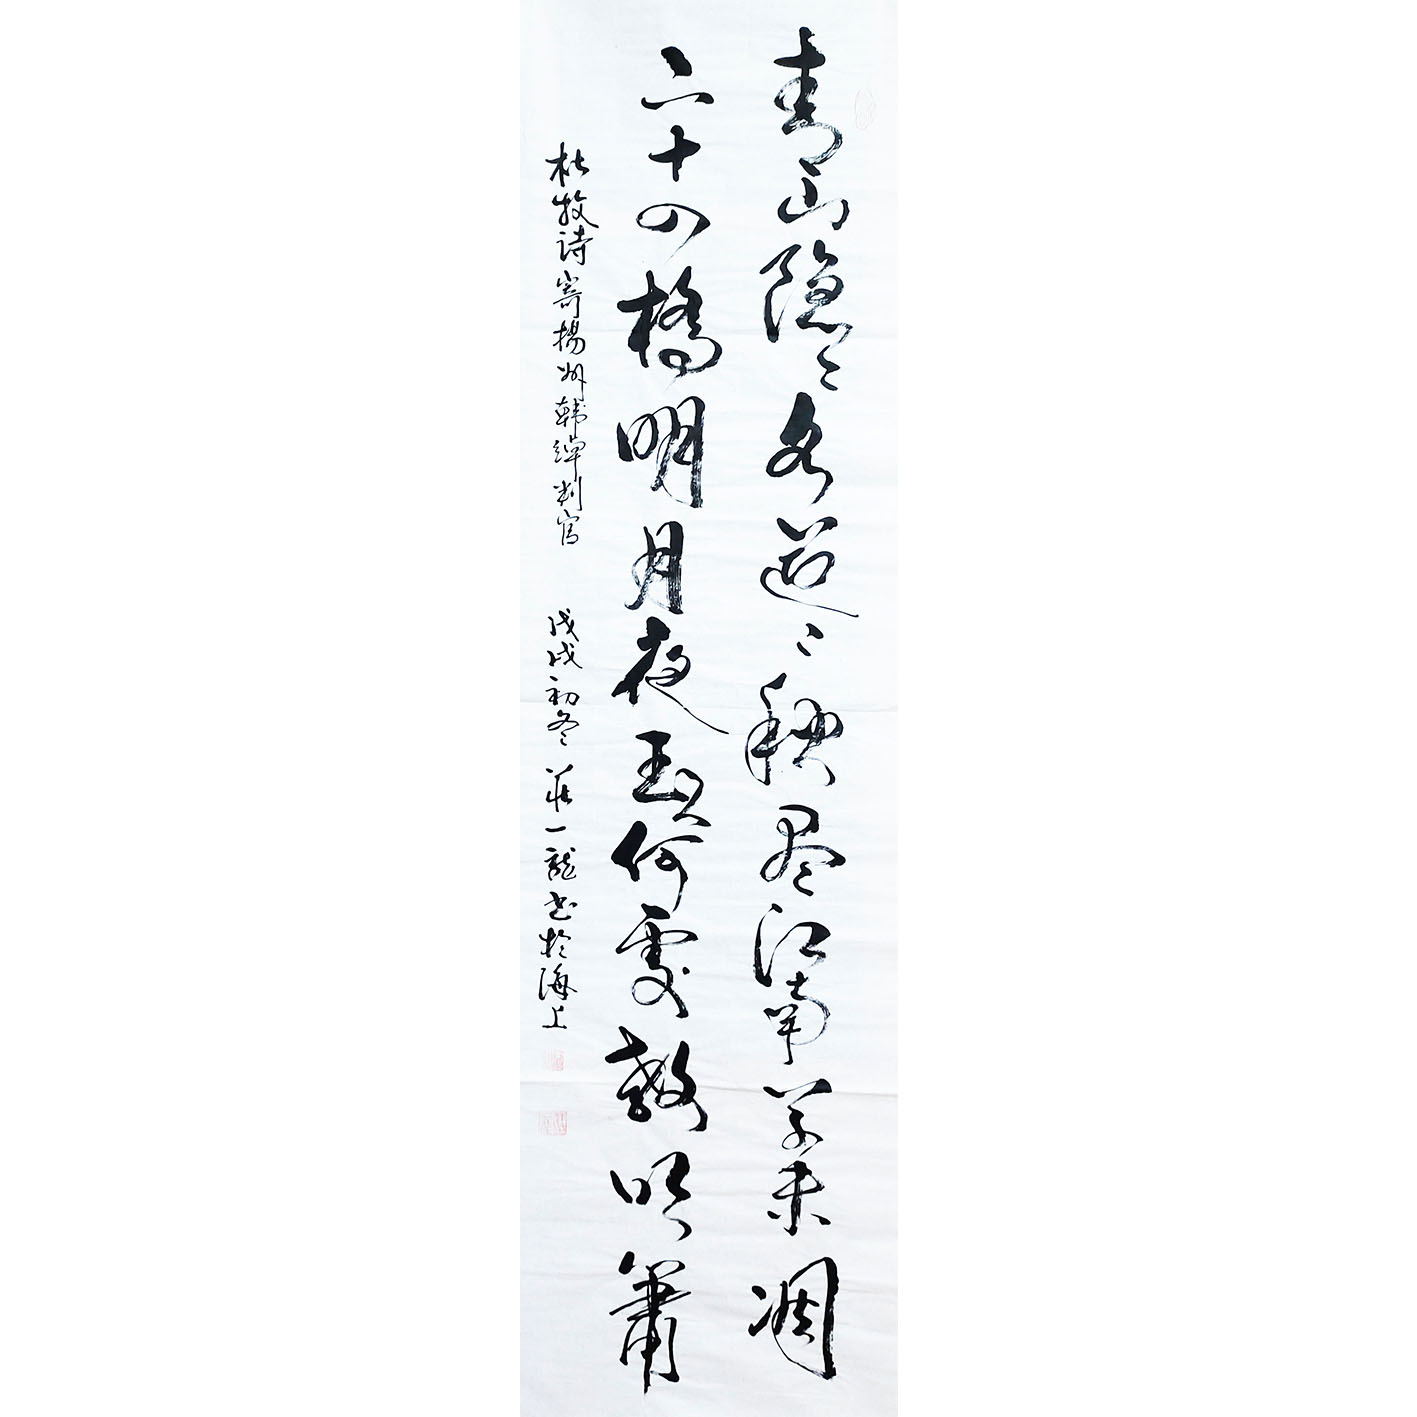 青山隐〻水迢〻秋尽江南草未凋
二十四橋明月夜玉人何處教吹簫
杜牧诗寄揚州韩綽判官 戊戌初冬 莊一龍书於海上